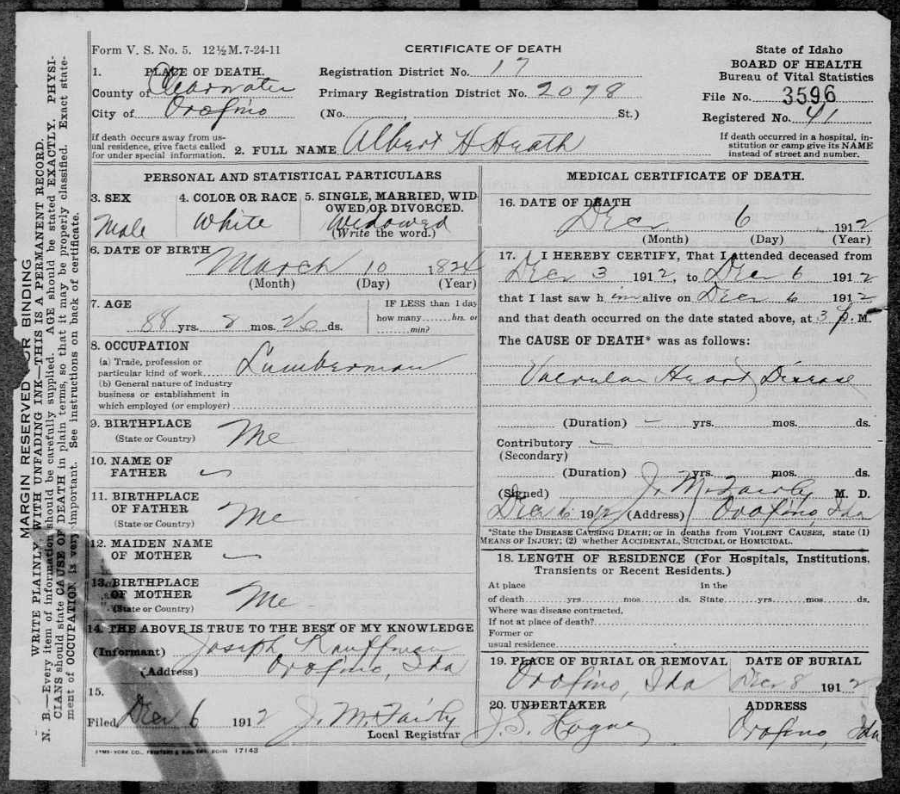 Form V. S. No. 5. 12½ M. 7-24-11
CERTIFICATE OF DEATH
State of Idaho
BOARD OF HEALTH
Bureau of Vital Statistics
File No. 3596
Registered No. 41
If death occurred in a hospital, in-
stitution or camp give its NAME
instead of street and number.
1. PLACE OF DEATH.
County of Clearwater
City of Orofino
If death occurs away from us-
ual residence, give facts called
for under special information.
Registration District No. 17
Primary Registration District No. 2078
(No. St.)
2. FULL NAME Albert H Heath
PERSONAL AND STATISTICAL PARTICULARS
3. SEX
Male
4. COLOR OR RACE
White
5. SINGLE, MARRIED, WID
OWED, OR DIVORCED.
Widowed
(Write the word.)
6. DATE OF BIRTH
March 10 1824
(Month) (Day) (Year)
7. AGE
88 yrs. 8 mos. 26 ds.
IF LESS than 1 day
how many hrs. or
min?
8. OCCUPATION
(a) Trade, profession or
particular kind of work Lumberman
(b) General nature of industry
business or establishment in
which employed (or employer)
9. BIRTHPLACE
(State or Country) Me
10. NAME OF
FATHER
11. BIRTHPLACE
OF FATHER
(State or Country) Me
12. MAIDEN NAME
OF MOTHER
13. BIRTHPLACE
OF MOTHER
(State or Country) Me
14. THE ABOVE IS TRUE TO THE BEST OF MY KNOWLEDGE
(Informant) Joseph Kauffman
(Address) Orofino, Ida
15.
Filed Dec 6 1912 J. M. Fairly
Local Registrar
17142
MEDICAL CERTIFICATE OF DEATH.
16. DATE OF DEATH
Dec 6 1912
(Month) (Day) (Year)
17. I HEREBY CERTIFY, That I attended deceased from
Dec 3 1912, to Dec 6 1912
that I last saw h im alive on Dec 6 1912
and that death occurred on the date stated above, at 3 p. M
The CAUSE OF DEATH* was as follows:
Valvular Heart Disease
(Duration) yrs. mos. ds.
Contributory
(Secondary)
(Duration) yrs. mos. ds.
(Signed) J. M. Fairly M. D.
Dec 6 1912 (Address) Orofino, Ida
*State the DISEASE CAUSING DEATH; or in deaths from VIOLENT CAUSES, state (1)
MEANS OF INJURY; (2) whether ACCIDENTAL, SUICIDAL or HOMICIDAL.
18. LENGTH OF RESIDENCE (For Hospitals, Institutions,
Transients or Recent Residents.)
At place In the
of death yrs. mos. ds. State yrs. mos. ds.
Where was disease contracted,
If not at place of death?
Former or
usual residence
19. PLACE OF BURIAL OR REMOVAL DATE OF BURIAL
Orofino, Ida Dec 8 1912
20. UNDERTAKER ADDRESS
J. S. Hogue Orofino, Ida
MARGIN RESERVED FOR BINDING
WRITE PLAINLY WITH UNFADING INK—THIS IS A PERMANENT RECORD.
N. B.—Every item of information should be carefully supplied. AGE should be stated EXACTLY. PHYSI-
CIANS should state CAUSE OF DEATH in plain terms, so that it may be properly classified. Exact state-
ment of OCCUPATION is very important. See instructions on back of certificate.